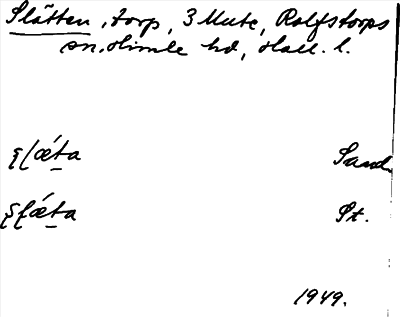 Slätten, torp, 3 Mute, Rolfstorps
sn, Himle hd, Hall. l.
ʂɭǽta Sand.
ʂɭǽta St.
1949.